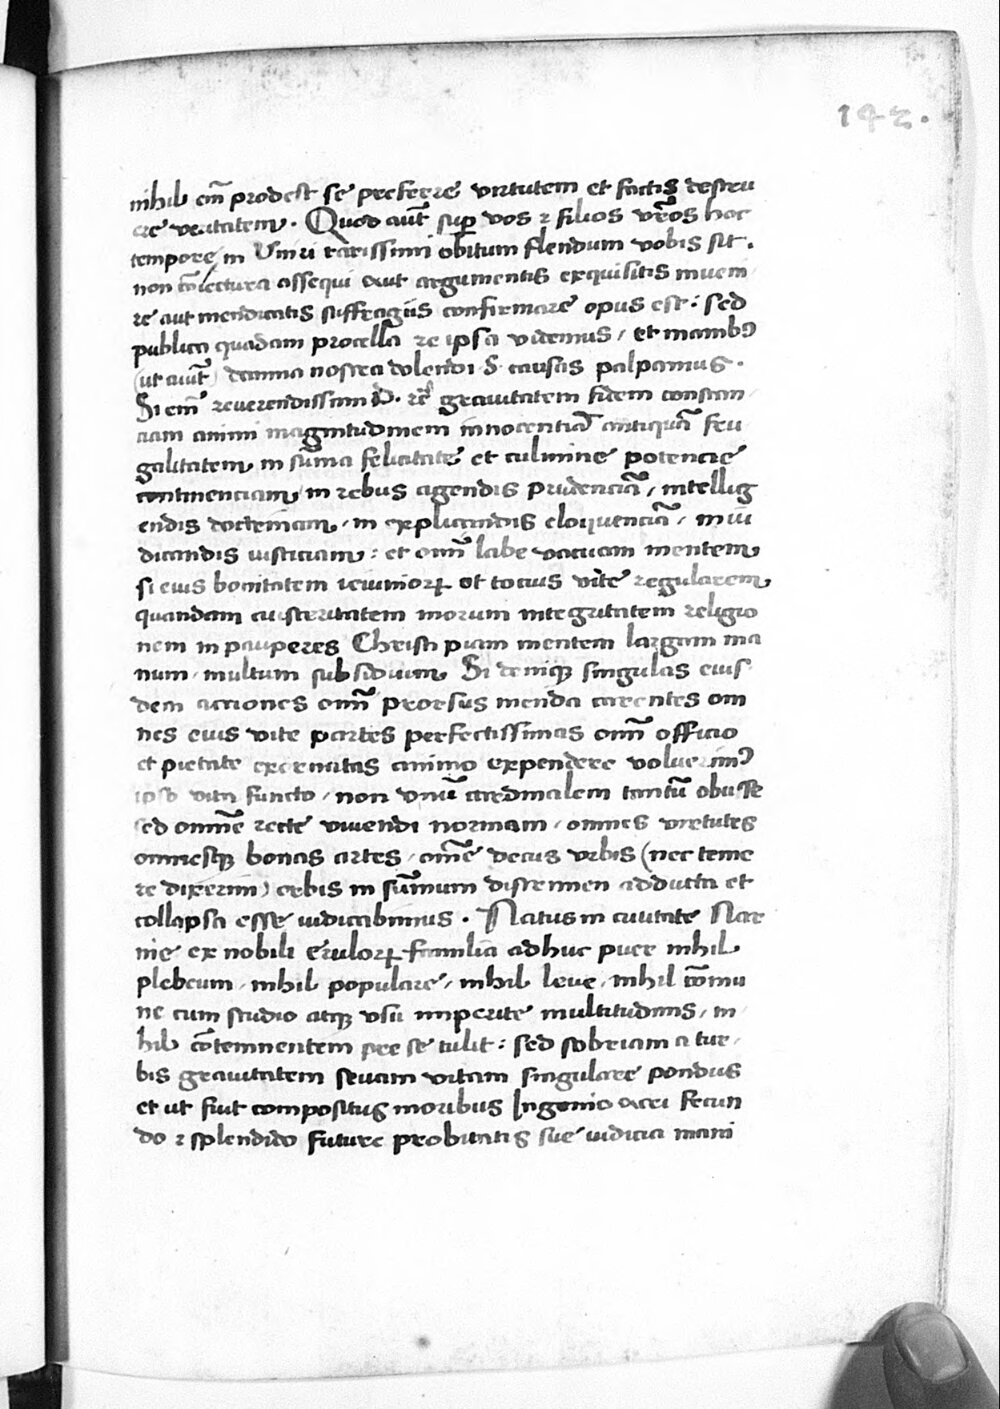 142.
nihil em̄ prodest se preferre virtutem et factis destru
ere veritatem. Quod aut̄ sup vos ⁊ filios vr̄os hoc
tempore in viri rarissimi obitum flendum vobis sit.
non cōiectura assequi aut argumentis exquisitis inueni
re aut mendicatis suffragiis confirmare opus est: sed
publica quadam procella re ipsa videmus, et manibꝰ
(ut aiūt) damna nostra dolendi causas palpamus.
Si em̄ reuerendissimi D. gravitatem fidem constan
ciam animi magnitudinem innocentiā antiquā fru
galitatem in sūma felicitate et culmine potencie
continenciam in rebus agendis prudenciā, intellig
endis doctrinam, in explicandis eloquenciā, in iu
dicandis iusticiam: et omī labe vacuam mentem
si eius bonitatem ieiuniorꝝ et tocius vite regularem
quandam austeritatem morum integritatem religio
nem in pauperes Christi piam mentem largam ma
num multum subsidium Si deniqꝫ singulas eius
dem acciones omī prorsus menda carentes om
nes eius vite partes perfectissimas omī officio
et pietate exornatas animo expendere voluerimꝰ
ipso vita functo, non vnū cardinalem tantū obisse
sed omnē recte viuendi normam, omnes virtutes
omnesqꝫ bonas artes, omē decus vrbis (nec teme
re dixerim) orbis in sūmum discrimen adducta et
collapsa esse iudicabimus. Natus in ciuitate Nar
nie ex nobili Erulorꝝ familia adhuc puer nihil
plebeum, nihil populare, nihil leue, nihil cōmu
ne cum studio atqꝫ vsu imperite multitudinis, ni
hil cōtemnentem pre se tulit: sed sobriam a tur
bis grauitatem seuam vitam singulare pondus
et ut fiut compositus moribus Ingenio acri fecun
do ⁊ splendido future probitatis sue iudicia mani